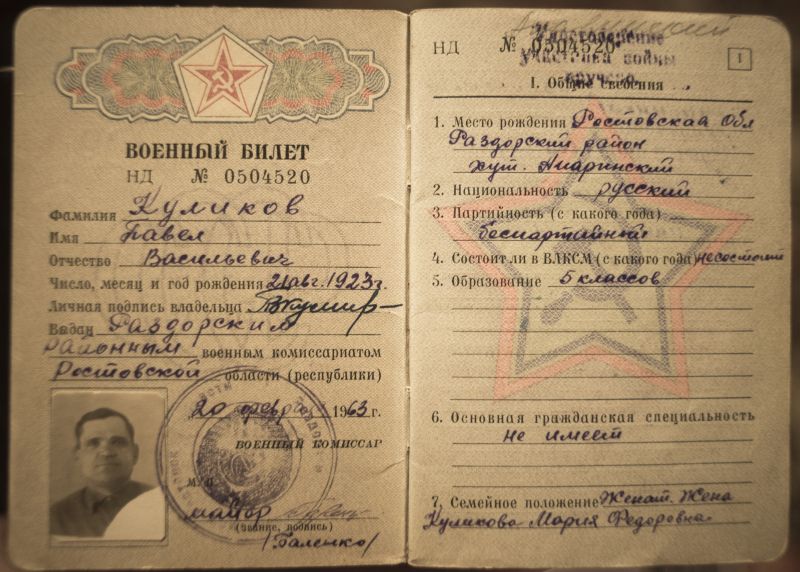 ВОЕННЫЙ БИЛЕТ
НД № 0504520
Фамилия Куликов
Имя Павел
Отчество Васильевич
Число, месяц и год рождения 21 авг. 1923 г.
Личная подпись владельца
Выдан Раздорским
районным военным комиссариатом
Ростовской области (республики)
„20 февраля 1963 г.
ВОЕННЫЙ КОМИССАР
М.П.
майор
(звание, подпись)
/Галенко/
НД № 0504520
Удостоверение
участника войны
вручено
1
I. Общие сведения
1. Место рождения Ростовская Обл
Раздорский район
хут.
2. Национальность русский
3. Партийность (с какого года)
беспартийный
4. Состоит ли в ВЛКСМ (с какого года) не состоит
5. Образование 5 классов
6. Основная гражданская специальность
не имеет
7. Семейное положение Женат. Жена
Куликова Мария Федоровна